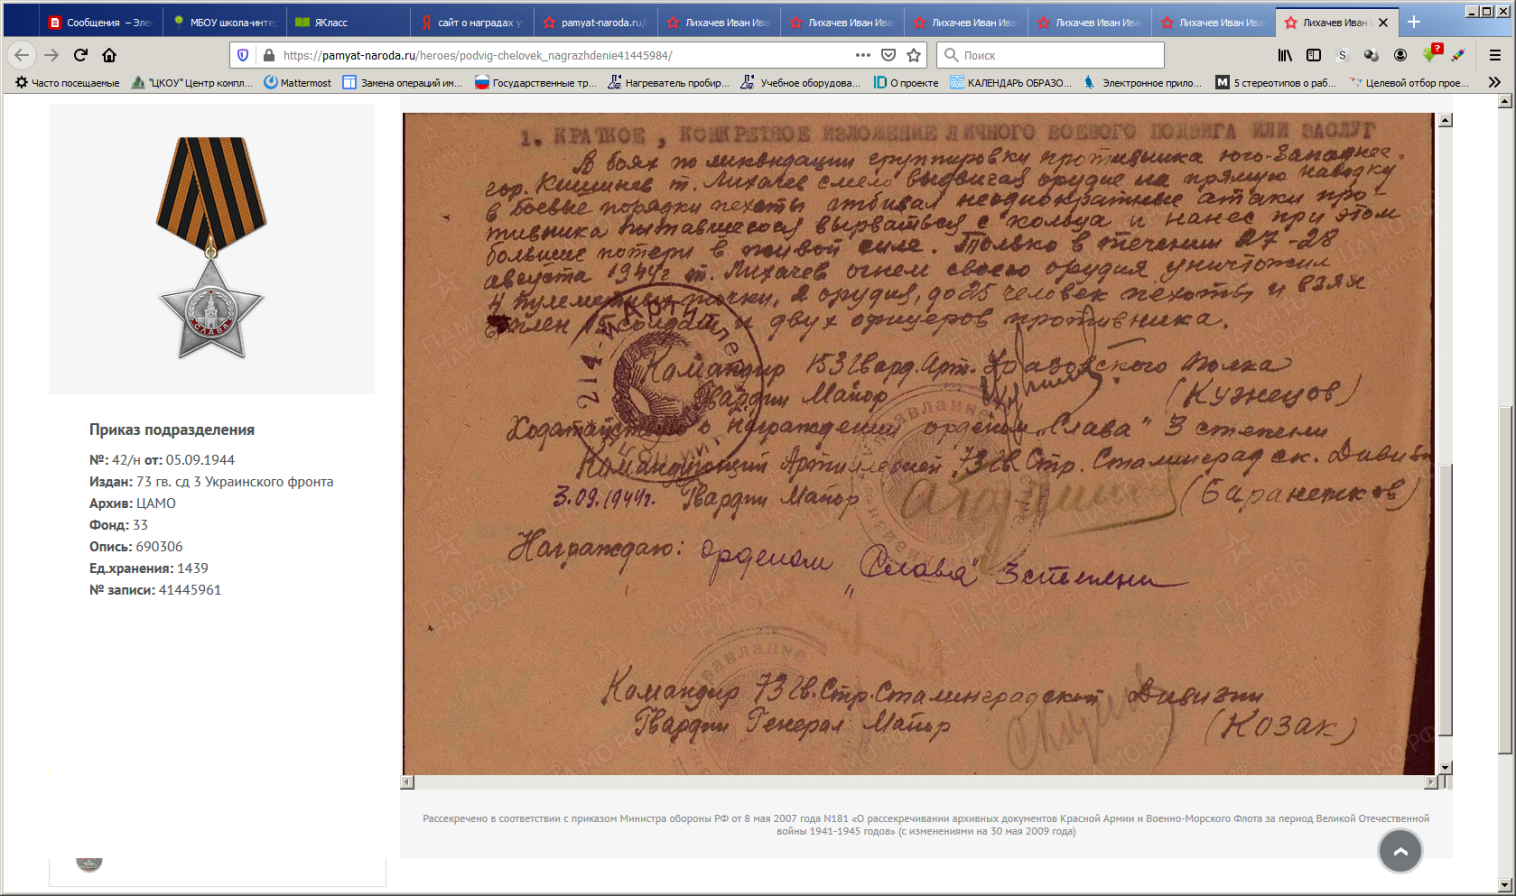 Сообщения – Эле
МБОУ школа-инте
ЯКласс
сайт о наградах у
pamyat-naroda.ru/
Лихачев Иван Ива
Лихачев Иван Ива
Лихачев Иван Ива
Лихачев Иван Ива
Лихачев Иван Ива
Лихачев Иван
https://pamyat-naroda.ru/heroes/podvig-chelovek_nagrazhdenie41445984/
Поиск
Часто посещаемые
"ЦКОУ" Центр компл...
Mattermost
Замена операций им...
Государственные тр...
Нагреватель пробир...
Учебное оборудова...
О проекте
КАЛЕНДАРЬ ОБРАЗО...
Электронное прило...
5 стереотипов о раб...
Целевой отбор прое...
СЛАВА
Приказ подразделения
№: 42/н от: 05.09.1944
Издан: 73 гв. сд 3 Украинского фронта
Архив: ЦАМО
Фонд: 33
Опись: 690306
Ед.хранения: 1439
№ записи: 41445961
1. КРАТКОЕ, КОНКРЕТНОЕ ИЗЛОЖЕНИЕ ЛИЧНОГО БОЕВОГО ПОДВИГА ИЛИ ЗАСЛУГ
В боях по ликвидации группировки противника юго-западнее.
гор. Кишинев т. Лихачев смело выдвигая орудие на прямую наводку
в боевые порядки пехоты отбивал неоднократные атаки про-
тивника пытавшегося вырваться с кольца и нанес при этом
большие потери в живой силе. Только в течении 27-28
августа 1944г т. Лихачев огнем своего орудия уничтожил
4 пулеметные точки, 2 орудия, до 25 человек пехоты и взял
в плен 15 солдат и двух офицеров противника.
Командир 153 Гвард. Арт. полка
Гвардии Майор (Кузнецов)
Ходатайствую о награждении орденом "Слава" 3 степени
Командующий Артиллерией 73 Гв. Стр. Сталинградск. Дивизии
3.09.1944г. Гвардии Майор
Награждаю: орденом "Слава" 3 степени
Командир 73 Гв. Стр. Сталинградской Дивизии
Гвардии Генерал Майор (Козак)
Рассекречено в соответствии с приказом Министра обороны РФ от 8 мая 2007 года N181 «О рассекречивании архивных документов Красной Армии и Военно-Морского Флота за период Великой Отечественной
войны 1941-1945 годов» (с изменениями на 30 мая 2009 года)